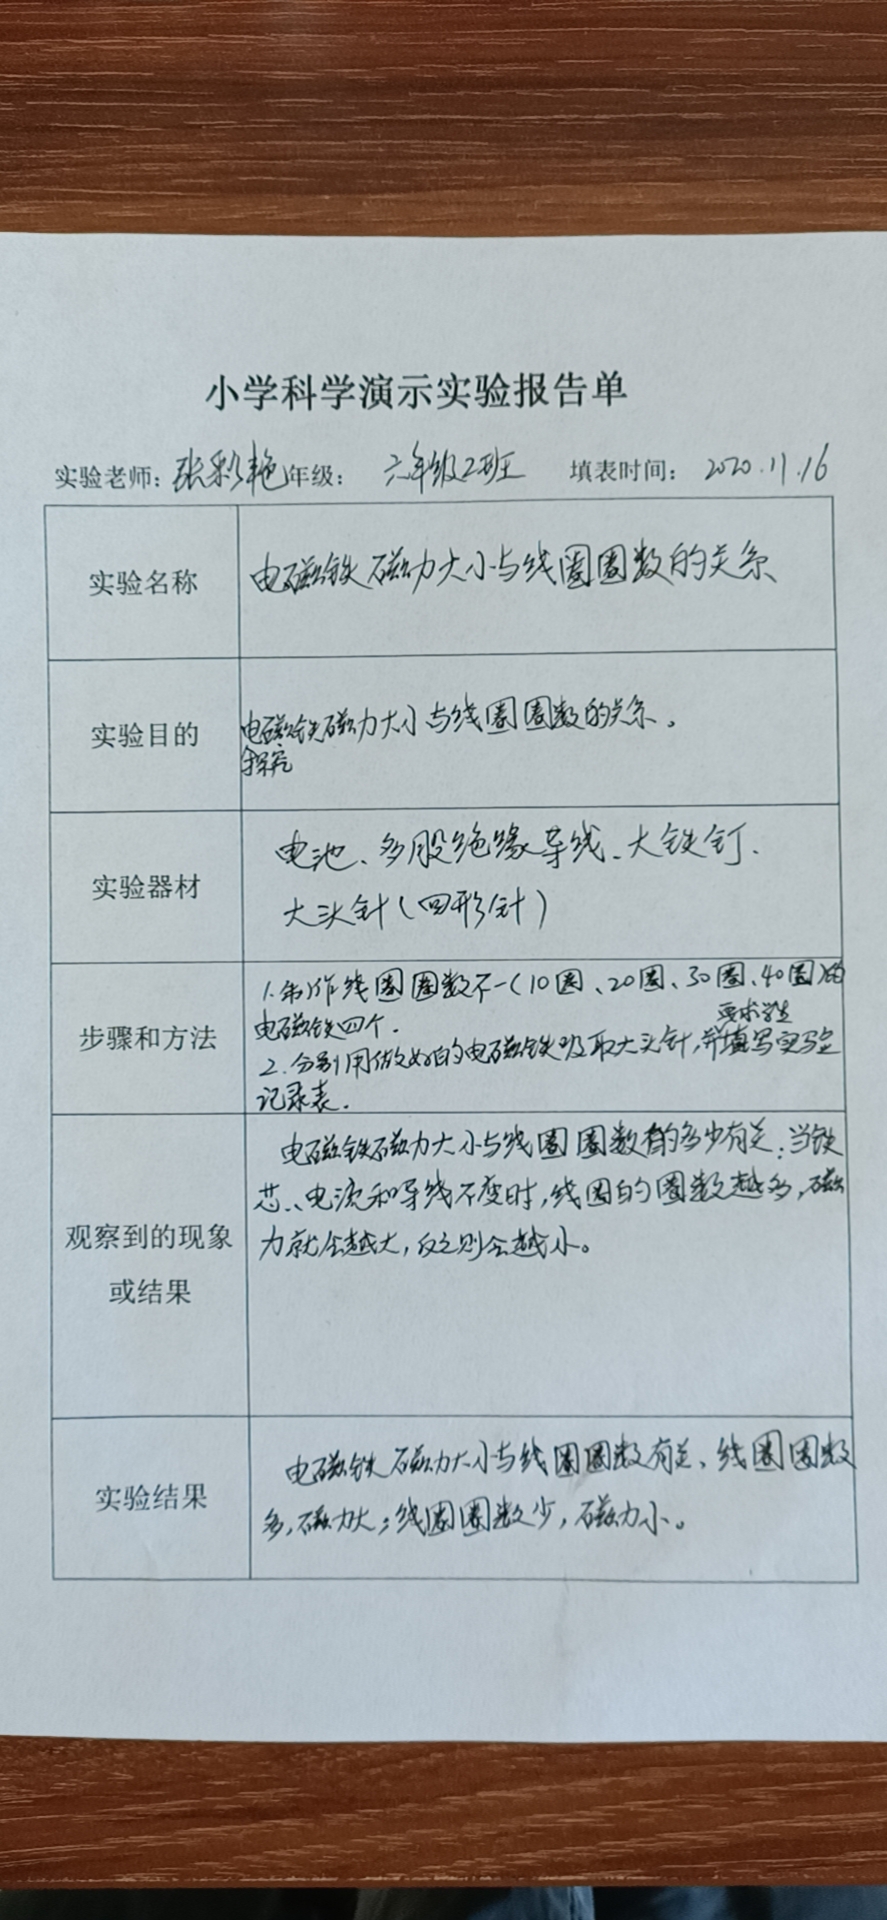 小学科学演示实验报告单
实验老师：张彩艳 年级： 六年级2班 填表时间： 2020.11.16
实验名称
电磁铁磁力大小与线圈圈数的关系
实验目的
电磁铁磁力大小与线圈圈数的关系。
探究
实验器材
电池、多股绝缘导线、大铁钉、
大头针（回形针）
步骤和方法
1.制作线圈圈数不一（10圈、20圈、30圈、40圈）的
电磁铁四个.
要求学生
2.分别用做好的电磁铁吸取大头针，并填写实验
记录表.
观察到的现象
或结果
电磁铁磁力大小与线圈圈数的多少有关：当铁
芯、电流和导线不变时，线圈的圈数越多，磁
力就会越大，反之则会越小。
实验结果
电磁铁磁力大小与线圈圈数有关、线圈圈数
多，磁力大；线圈圈数少，磁力小。